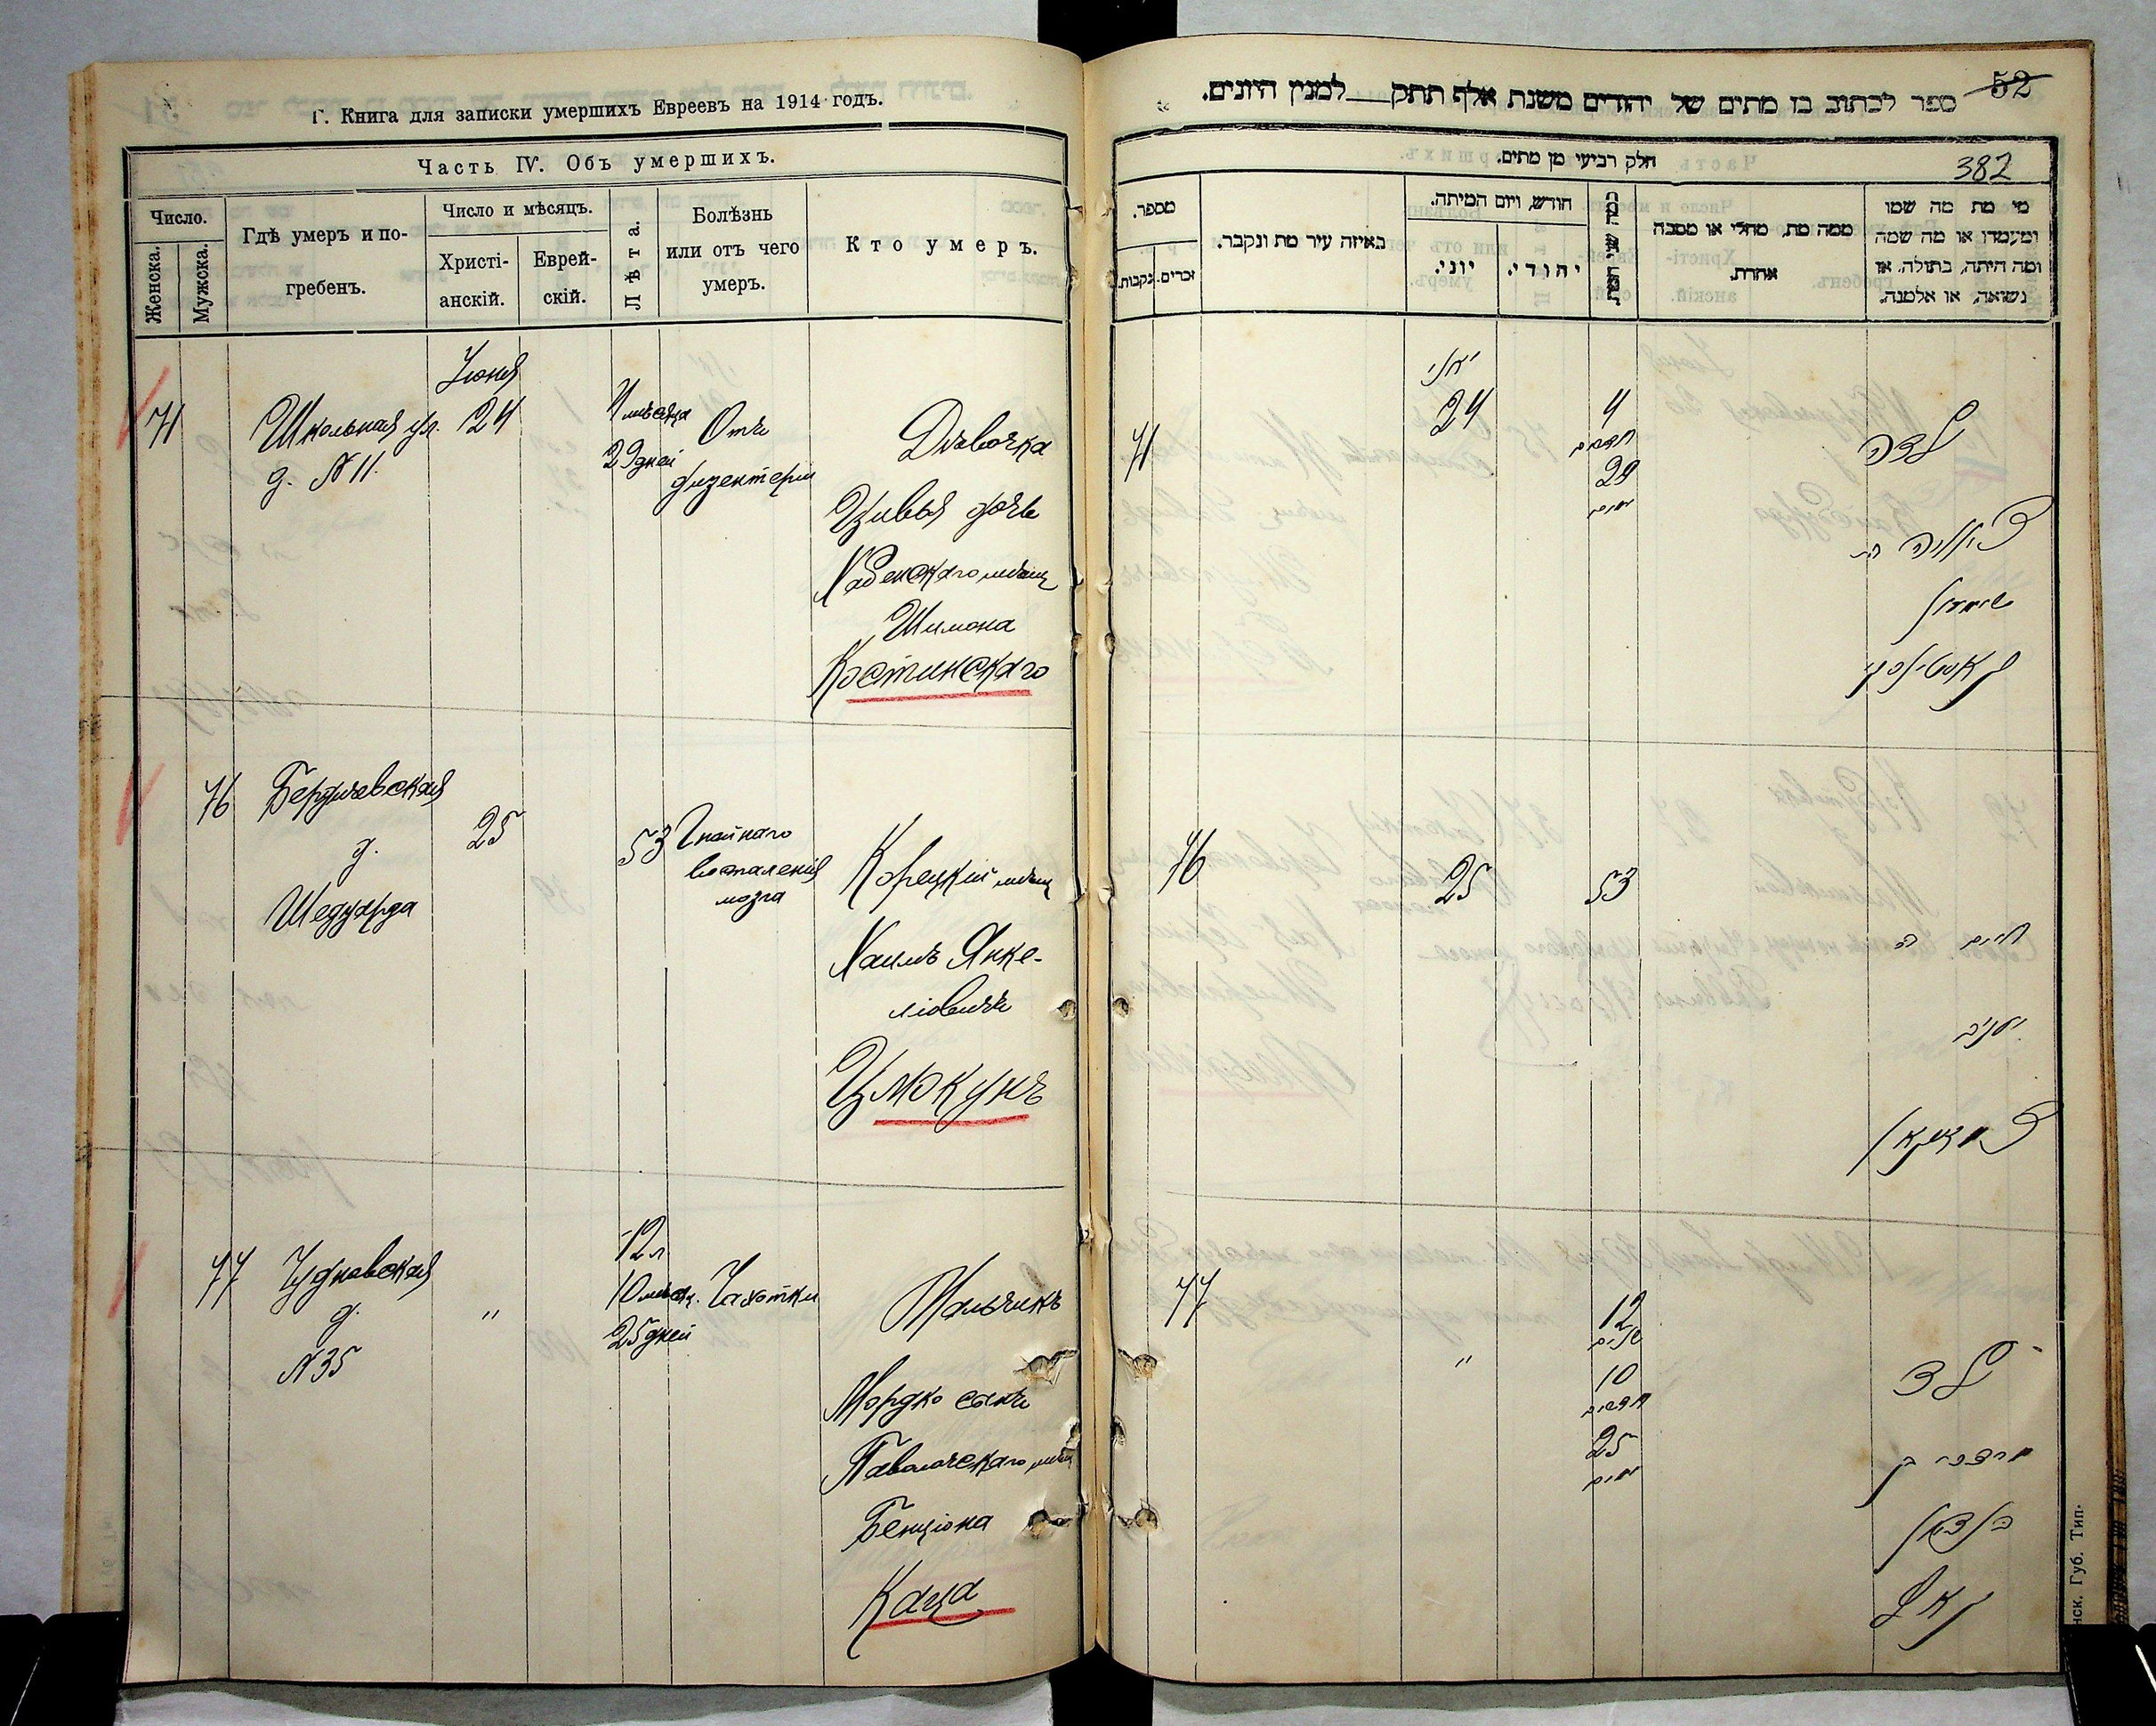 Г. Книга для записки умершихъ Евреевъ на 1914 годъ.
Часть IV. Объ умершихъ.
Число.
Женска.
Мужска.
Гдѣ умеръ и по-
гребенъ.
Число и мѣсяцъ.
Христі-
анскій.
Еврей-
скій.
Лѣта.
Болѣзнь
или отъ чего
умеръ.
Кто умеръ.
Іюня
71
Школьная ул.
д. № 11.
24
4 мѣсяца
29 дней
Отъ
дизентеріи
Дѣвочка
Цивья дочь
мѣщ
Шимона
Костинскаго
76
Бердичевская
д.
25
53
Гнойнаго
воспаленія
мозга
Корецкій мѣщ
Хаимъ Янке-
ліовичъ
Цмокунъ
77
Чудновская
д.
№ 35
"
12 л
10 мѣсяц.
25 дней
Чахотки
Мальчикъ
Мордко сынъ
Паволочскаго мѣщ
Бенціона
Каца
52
ספר לכתוב בו מתים של יהודים משנת אלף תתק___למנין היונים.
382
חלק רביעי מן מתים.
מספר.
זכרים.
נקבות.
באיזה עיר מת ונקבר.
חודש, ויום המיתה.
יוני.
יהודי.
ממה מת, מחלי או מסבה
אחרת.
מי מת מה שמו
ומעמדו או מה שמה
ומה היתה, בתולה, או
נשואה, או אלמנה.
יוני
71
24
4
חדשים
29
ימים
ילדה
צוויה בת
שימון
קאסטינסקי
76
25
53
חיים ב
יענקב
צמאקון
77
"
12
שנים
10
חדשים
25
ימים
ילד
מרדכי בן
בן ציון
קאץ
нск. Губ. Тип.